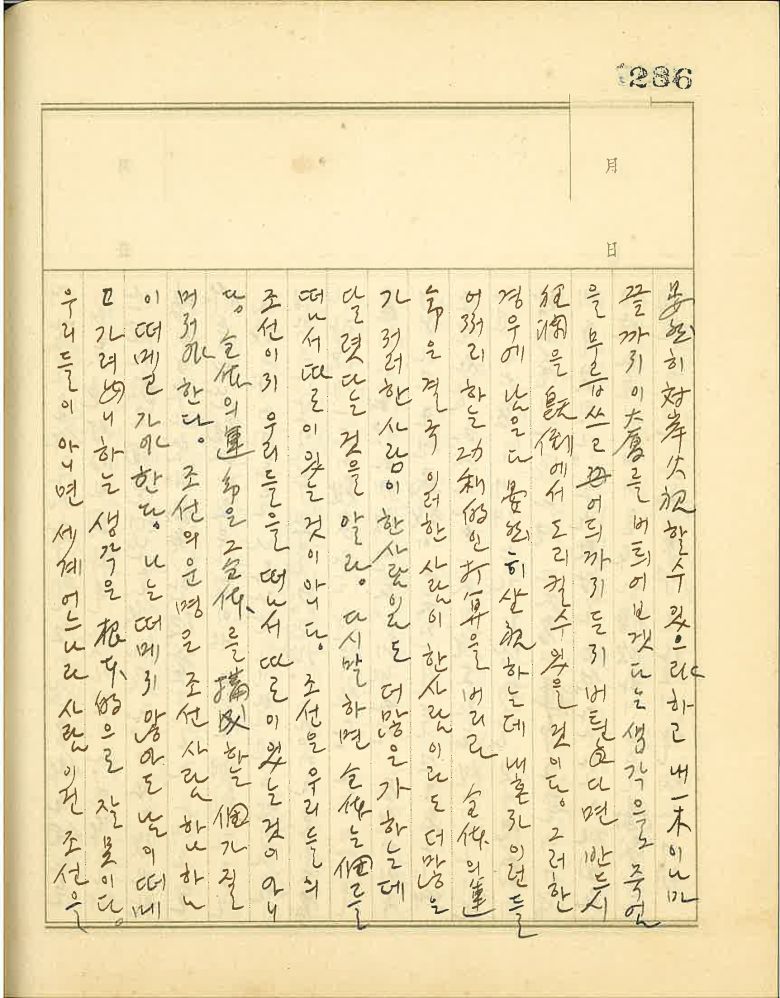 286
月
日
晏然히 対岸火視할 수 있으랴 하고 내 一木이나마
끝까지 이 大廈를 버틔어 보겟다는 생각으로 죽엄
을 무릅쓰고 어듸까지든지 버틴다면 반드시
狂瀾을 旣倒에서 도리킬 수 있을 것이다. 그러한
경우에 남은 다 晏然히 坐視하는데 내 혼자 이런들
어쩌리 하는 功利的인 打算을 버리라 全体의 運
命은 결국 이러한 사람이 한 사람이라도 더 많은
가 저러한 사람이 한 사람이도 더 많은가 하는데
달렷다는 것을 알라. 다시 말하면 全体는 個를
떠나서 따로이 있는 것이 아니다. 조선은 우리들의
조선이지 우리들을 떠나서 따로이 있는 것이 아니
다. 全体의 運命은 그 全体를 構成하는 個가 질
머저야 한다. 조선의 운명은 조선사람 하나하나
이 떠메고 가야 한다. 나는 떠메지 않아도 남이 떠메
고 가려니 하는 생각은 根本的으로 잘못이다.
우리들이 아니면 세계 어느 나라 사람이 조선을